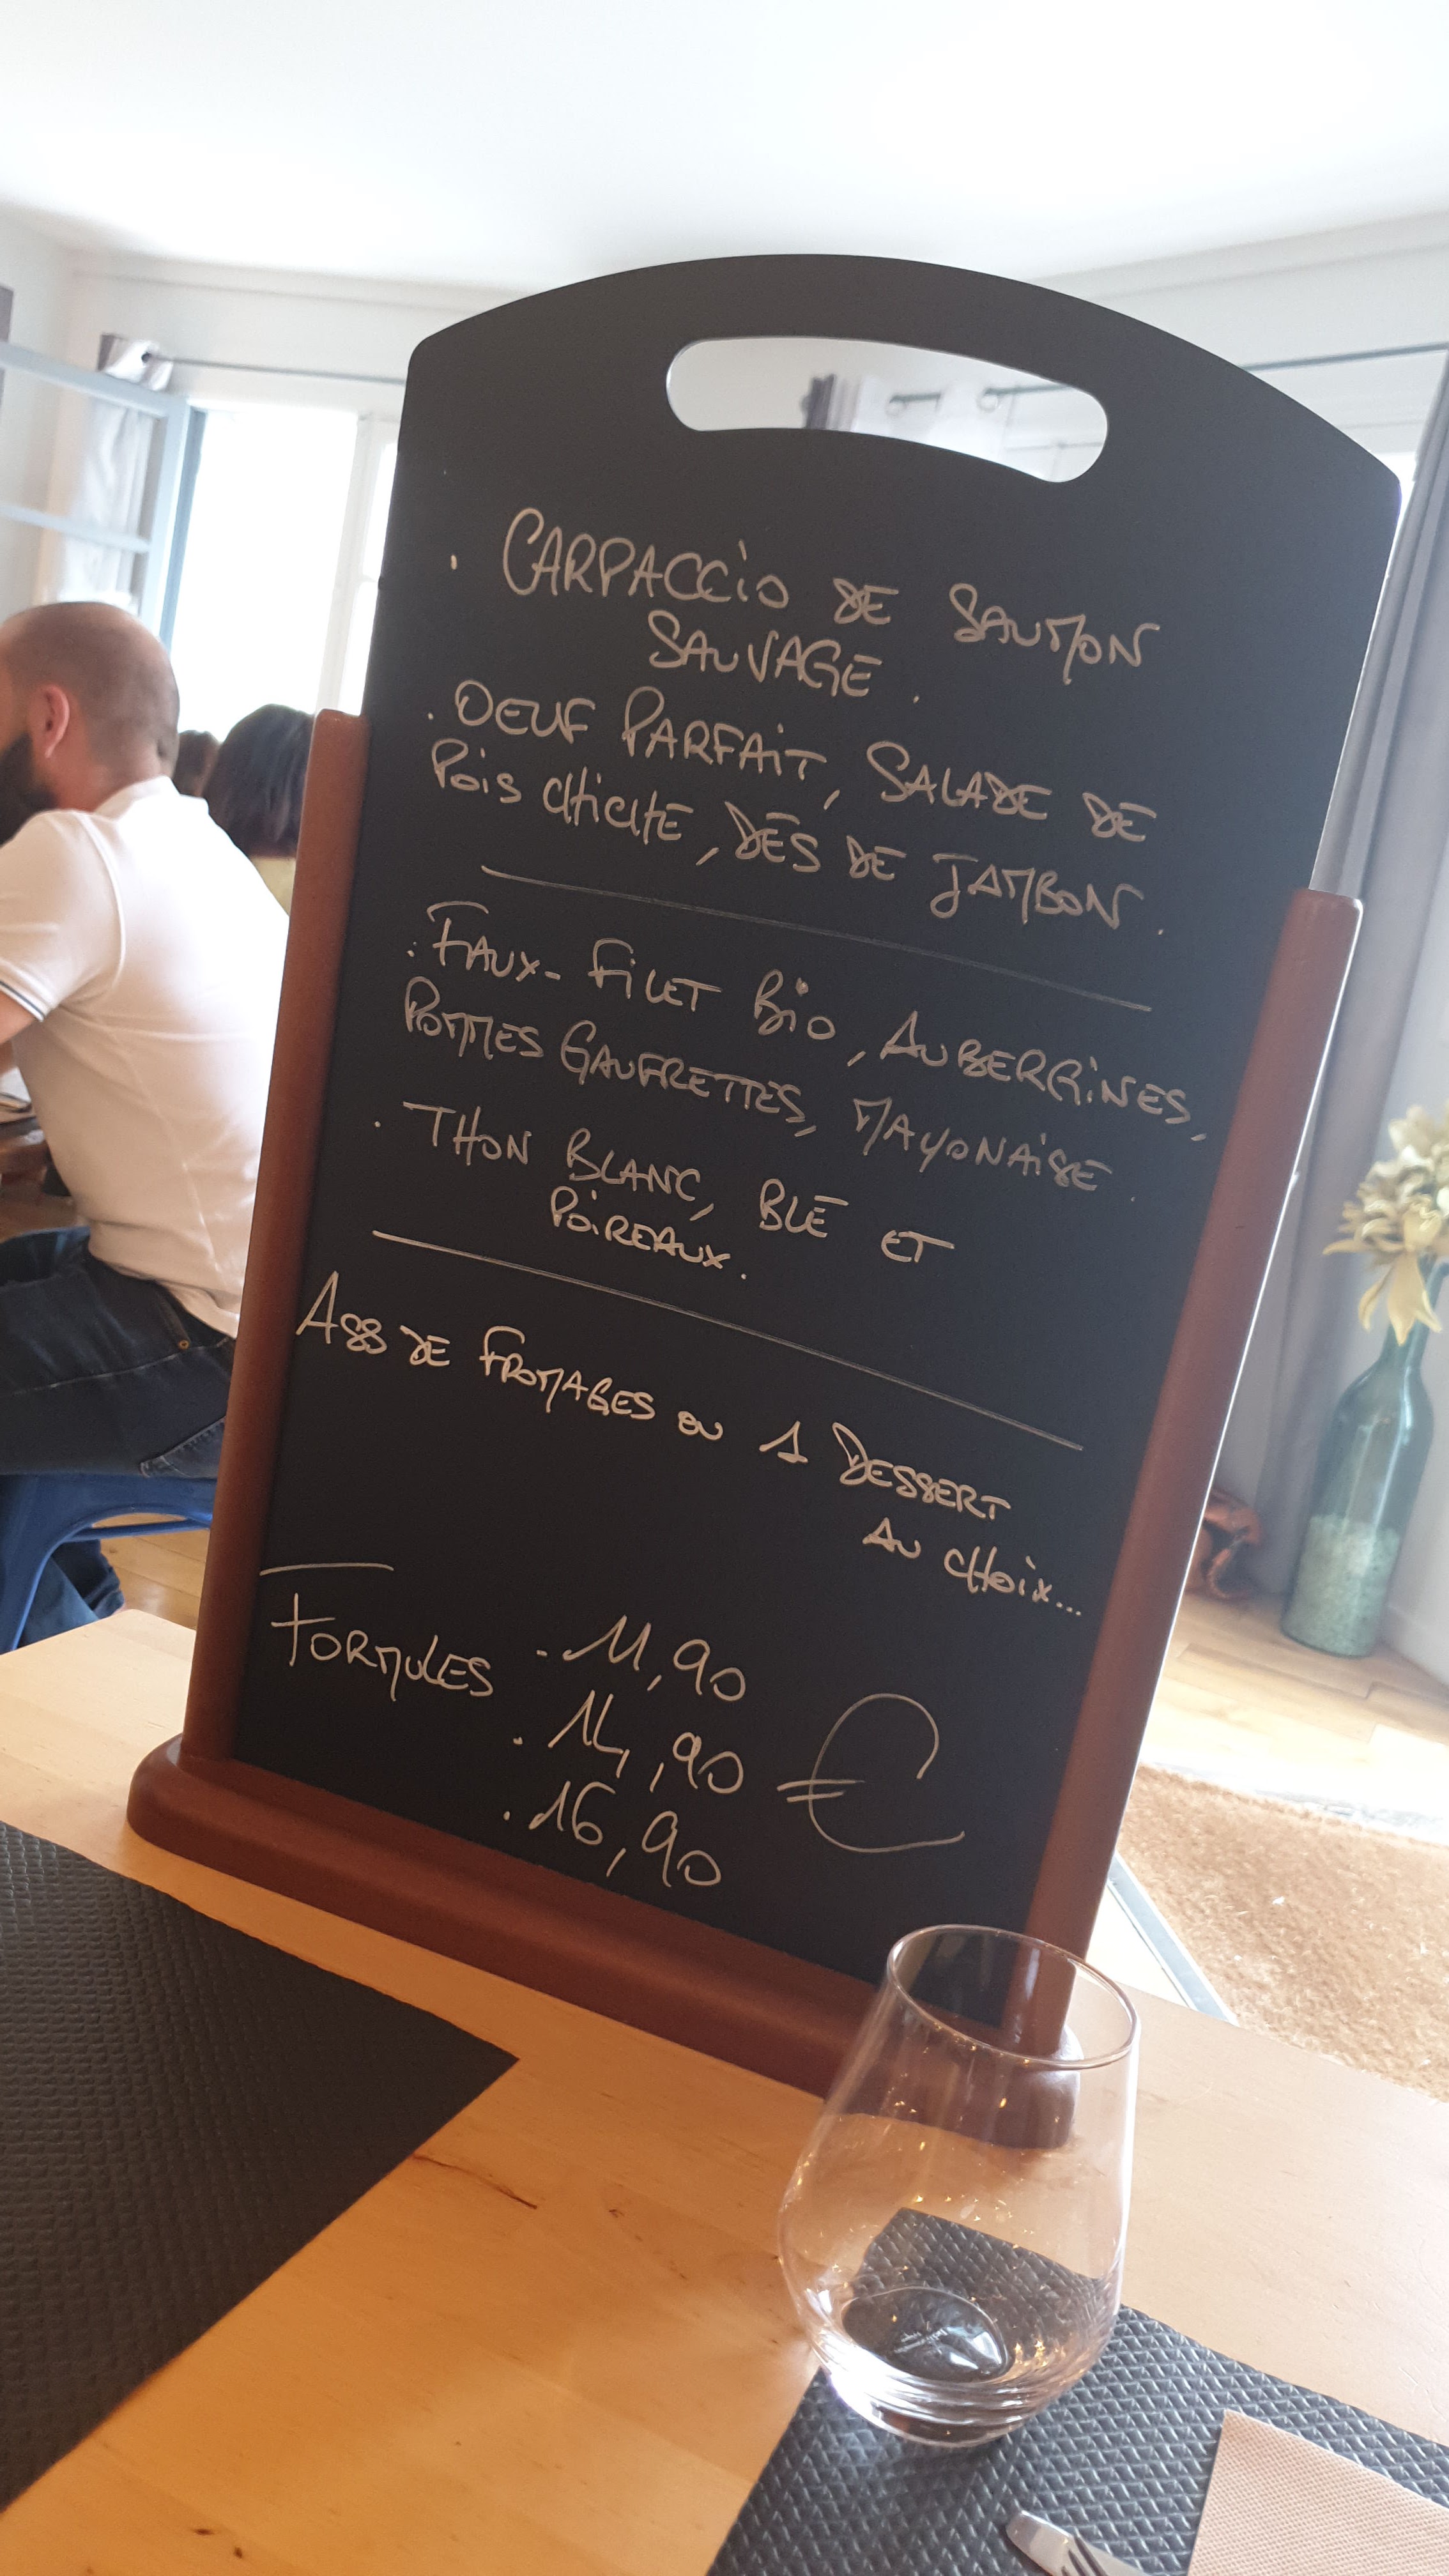 . CARPACCIO DE SAUMON
SAUVAGE.
. OEUF PARFAIT, SALADE DE
POIS CHICHE, DÉS DE JAMBON.
. FAUX-FILET BIO, AUBERGINES,
POMMES GAUFRETTES, MAYONAISE.
. THON BLANC, BLÉ ET
POIREAUX.
ASS DE FROMAGES OU 1 DESSERT
AU CHOIX...
FORMULES . 11,90
. 14,90 €
. 16,90